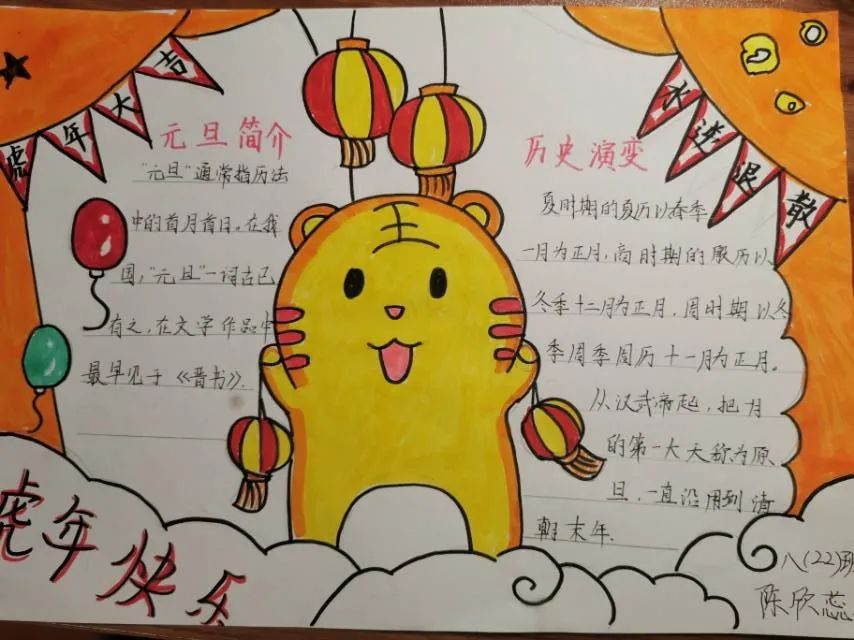 虎年大吉
水逆退散
元旦简介
"元旦"通常指历法
中的首月首日。在我
国，"元旦"一词古已
有之，在文学作品中
最早见于《晋书》.
历史演变
夏时期的夏历以春季
一月为正月，商时期的殷历以
冬季十二月为正月，周时期以冬
季周季周历十一月为正月。
从汉武帝起，把月
的第一大天称为原
旦，一直沿用到清
朝末年.
虎年快乐
八(22)班
陈欣蕊